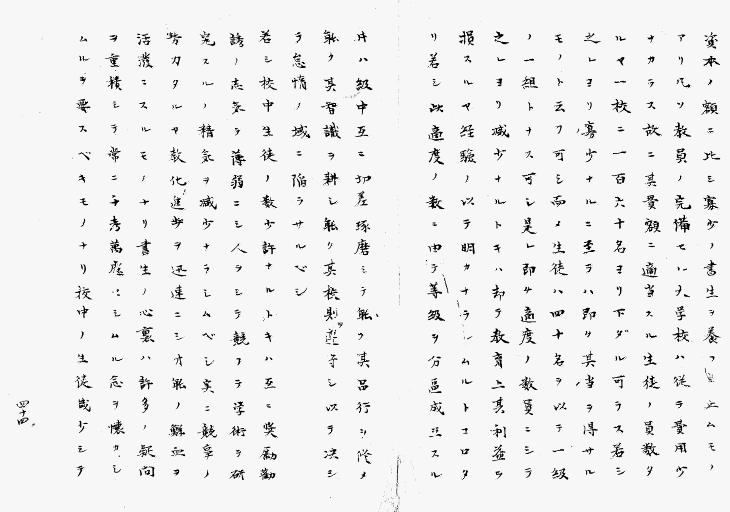 資本ノ額ニ比シ寡少ノ書生ヲ養フニ止ムモノ
アリ凡ソ教員ノ完備セル大学校ハ従テ費用少
ナカラス故ニ其費額ニ適当スル生徒ノ員数タ
ルヤ一校ニ一百六十名ヨリ下ダル可ラス若シ
之レヨリ寡少ナルニ至テハ即チ其当ヲ得サル
モノト云フ可シ而メ生徒ハ四十名ヲ以テ一級
ノ一組トナス可シ是レ即チ適度ノ数員ニシテ
之レヨリ減少ナルトキハ却テ教育上其利益ヲ
損スルヤ経験ノ以テ明カナラシムルトコロタ
リ若シ此適度ノ数ニ由テ等級ヲ分區成立スル
片ハ級中互ニ切差琢磨シテ能ク其品行ヲ修メ
能ク其智識ヲ耕シ能ク其校則ヲ遵守シ以テ决シ
テ怠惰ノ域ニ陥ラサルベシ
若シ校中生徒ノ数少許ナルトキハ互ニ奨励勸
誘ノ志気ヲ薄弱ニシ人ヲシテ競フテ学術ヲ研
究スルノ精気ヲ减少ナラシムベシ実ニ競争ノ
势力タルヤ教化進歩ヲ迅速ニシ才能ノ鮮血ヲ
活溌ニスルモノナリ書生ノ心裏ハ許多ノ疑问
ヲ重積シテ常ニ千考萬慮セシムル念ヲ懐カシ
ムルヲ要スベキモノナリ校中ノ生徒減少シテ
四十四